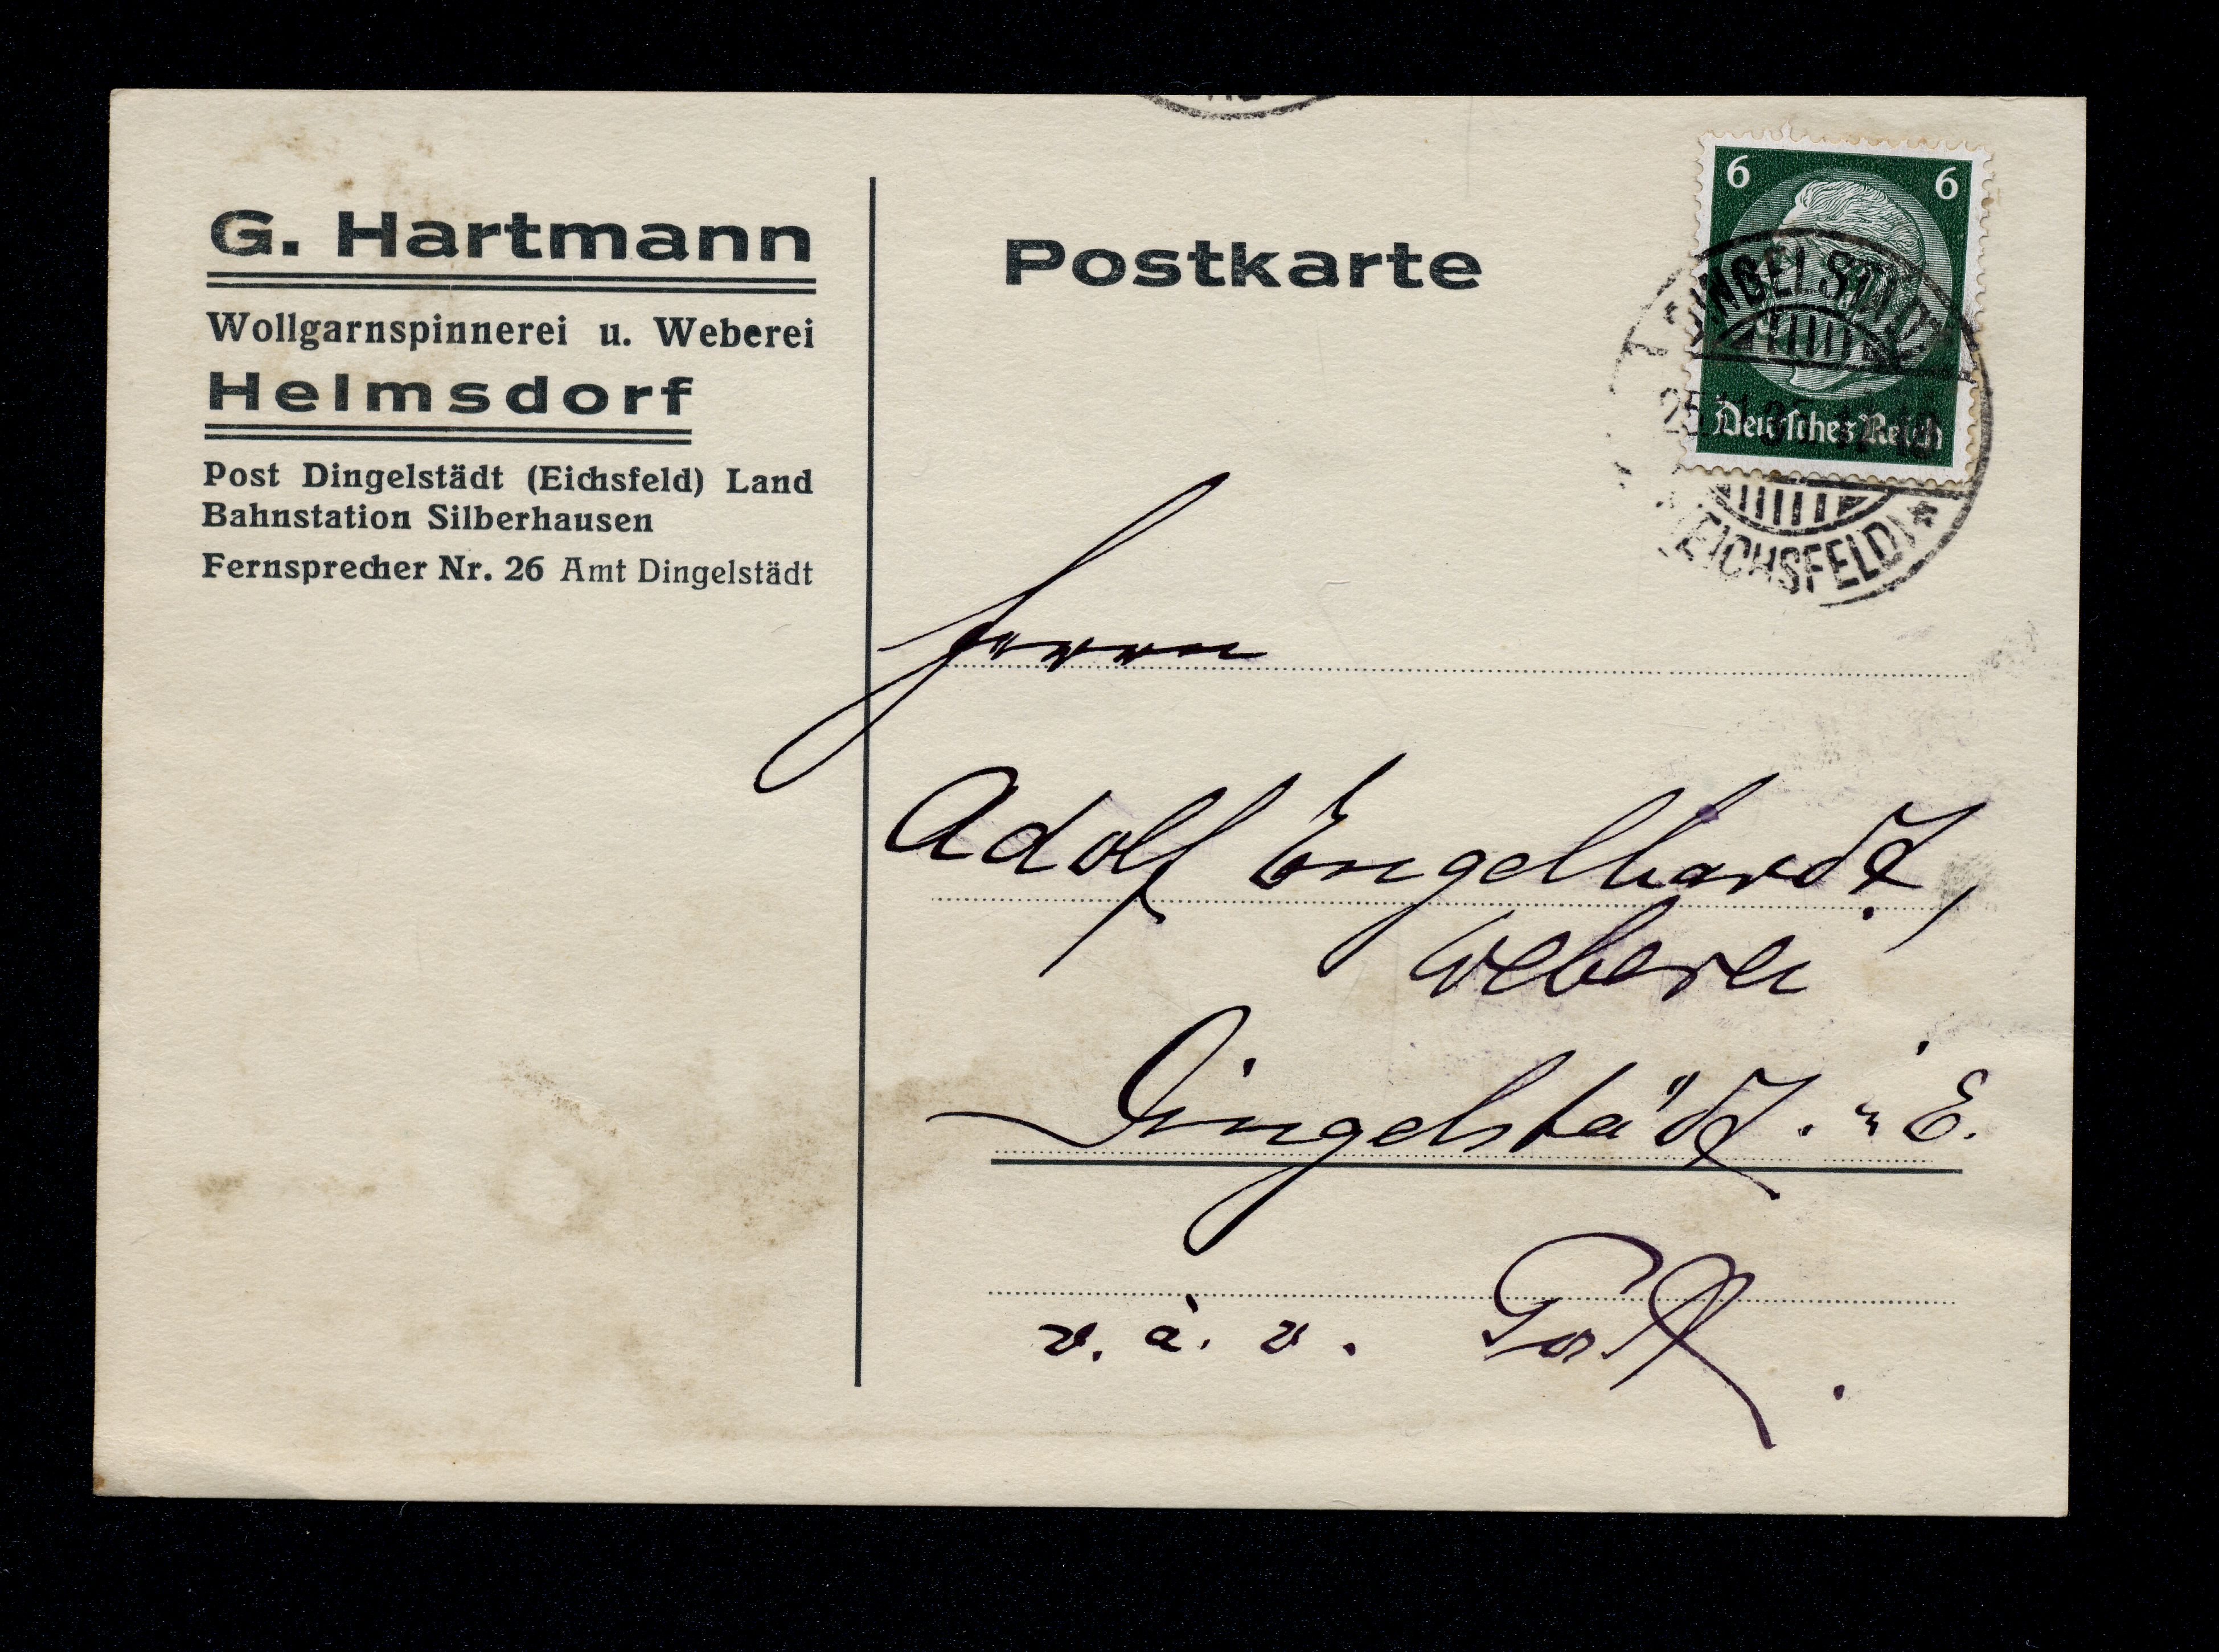 G. Hartmann
Wollgarnspinnerei u. Weberei
Helmsdorf
Post Dingelstädt (Eichsfeld) Land
Bahnstation Silberhausen
Fernsprecher Nr. 26 Amt Dingelstädt
Postkarte
6 6
Deutsches Reich
DINGELSTÄDT
(EICHSFELD) *
Herrn
Adolf Engelhardt,
Weberei
Dingelstädt. i. E.
v. à. v. Post.